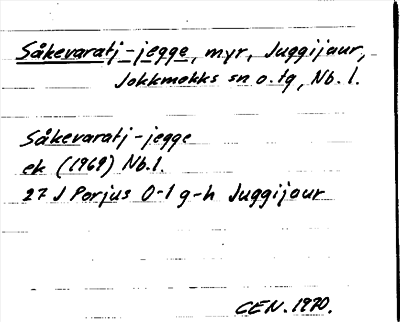 Såkevaratj-jegge, myr, Juggijaur,
Jokkmokks sn o. tg, Nb. l.
Såkevaratj-jegge
ek (1969) Nb.l.
27 J Porjus 0-1 g-h Juggijaur
CEN. 1970.